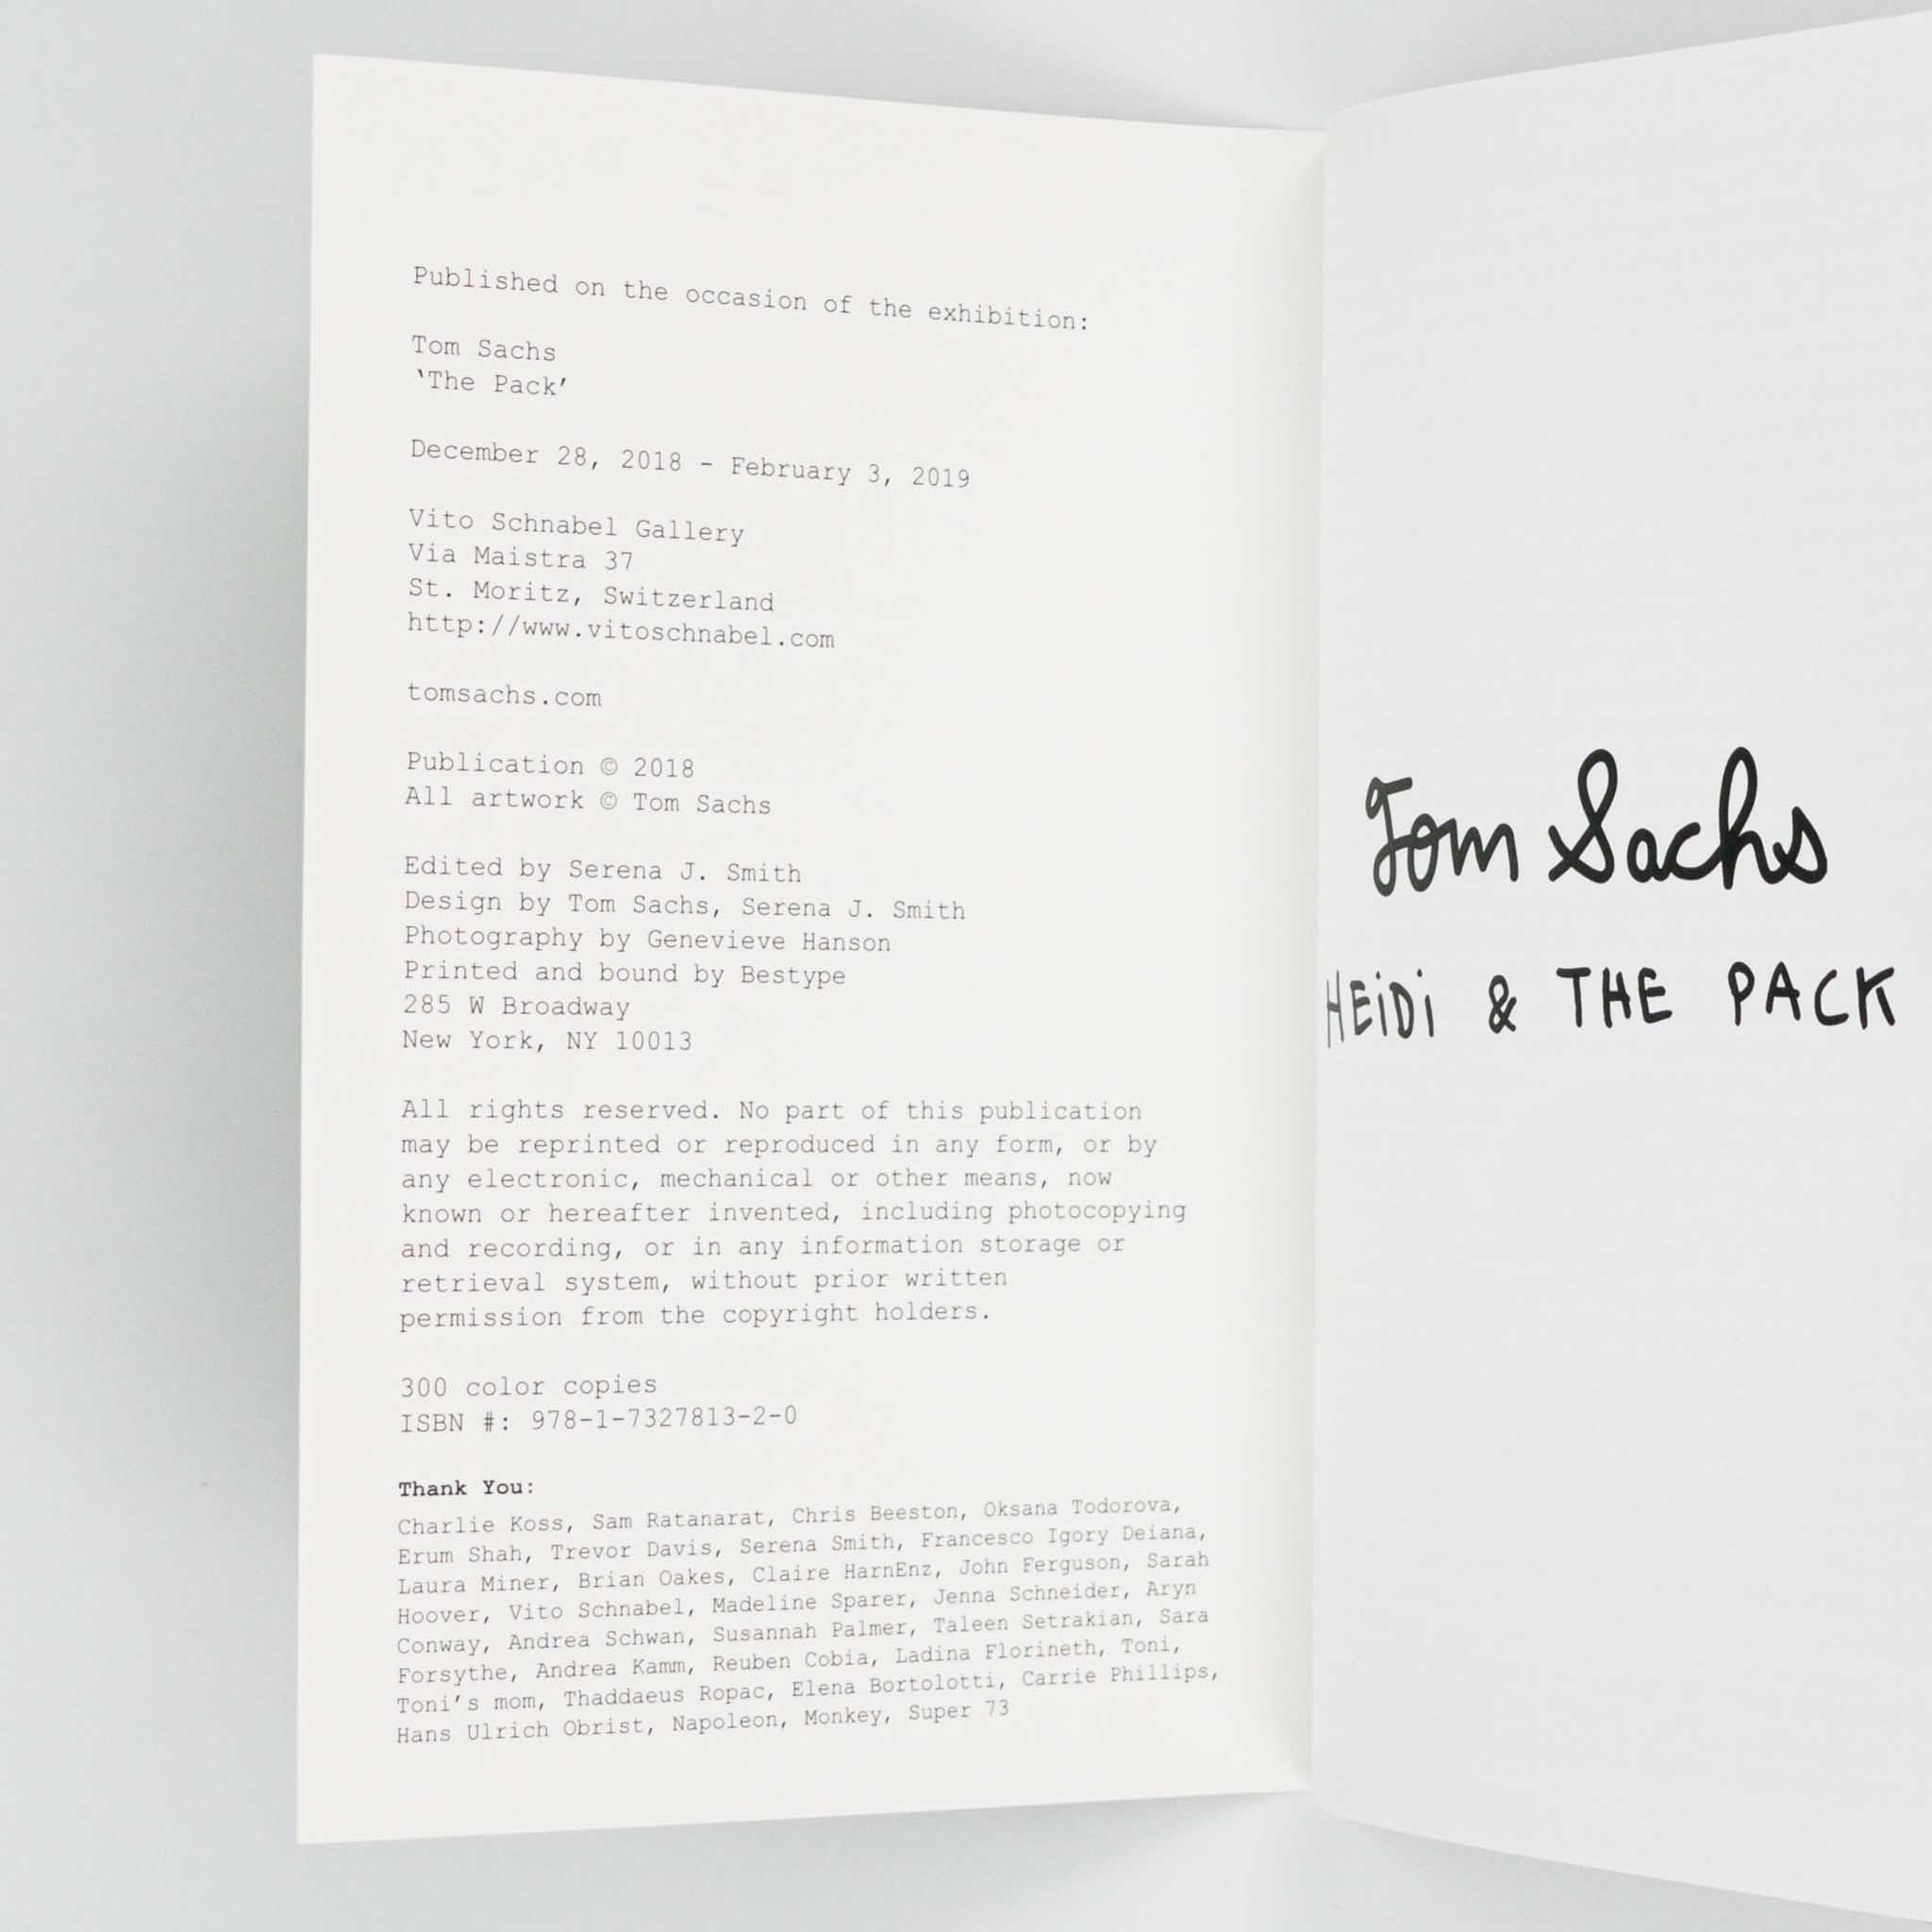 Published on the occasion of the exhibition:
Tom Sachs
‘The Pack’
December 28, 2018 - February 3, 2019
Vito Schnabel Gallery
Via Maistra 37
St. Moritz, Switzerland
http://www.vitoschnabel.com
tomsachs.com
Publication © 2018
All artwork © Tom Sachs
Edited by Serena J. Smith
Design by Tom Sachs, Serena J. Smith
Photography by Genevieve Hanson
Printed and bound by Bestype
285 W Broadway
New York, NY 10013
All rights reserved. No part of this publication
may be reprinted or reproduced in any form, or by
any electronic, mechanical or other means, now
known or hereafter invented, including photocopying
and recording, or in any information storage or
retrieval system, without prior written
permission from the copyright holders.
300 color copies
ISBN #: 978-1-7327813-2-0
Thank You:
Charlie Koss, Sam Ratanarat, Chris Beeston, Oksana Todorova,
Erum Shah, Trevor Davis, Serena Smith, Francesco Igory Deiana,
Laura Miner, Brian Oakes, Claire HarnEnz, John Ferguson, Sarah
Hoover, Vito Schnabel, Madeline Sparer, Jenna Schneider, Aryn
Conway, Andrea Schwan, Susannah Palmer, Taleen Setrakian, Sara
Forsythe, Andrea Kamm, Reuben Cobia, Ladina Florineth, Toni,
Toni’s mom, Thaddaeus Ropac, Elena Bortolotti, Carrie Phillips,
Hans Ulrich Obrist, Napoleon, Monkey, Super 73
Tom Sachs
HEiDi & THE PACK